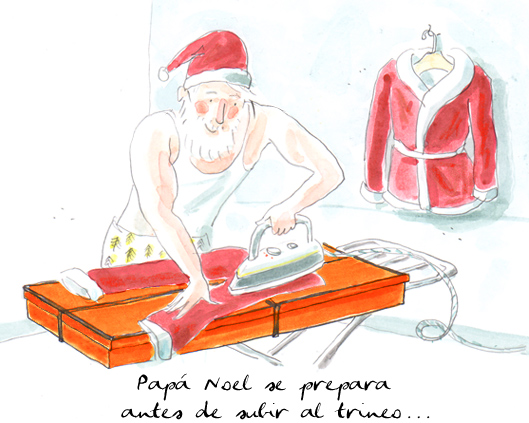 Papá Noel se prepara
antes de subir al trineo...